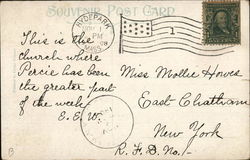 SOUVENIR POST CARD
HYDE PARK
PM
MASS.
1
This is the
church where
Percie has been
the greater part
of the week.
E. E. W.
Miss Mollie Howes
East Chatham
New York
R.F.D. No. 1-